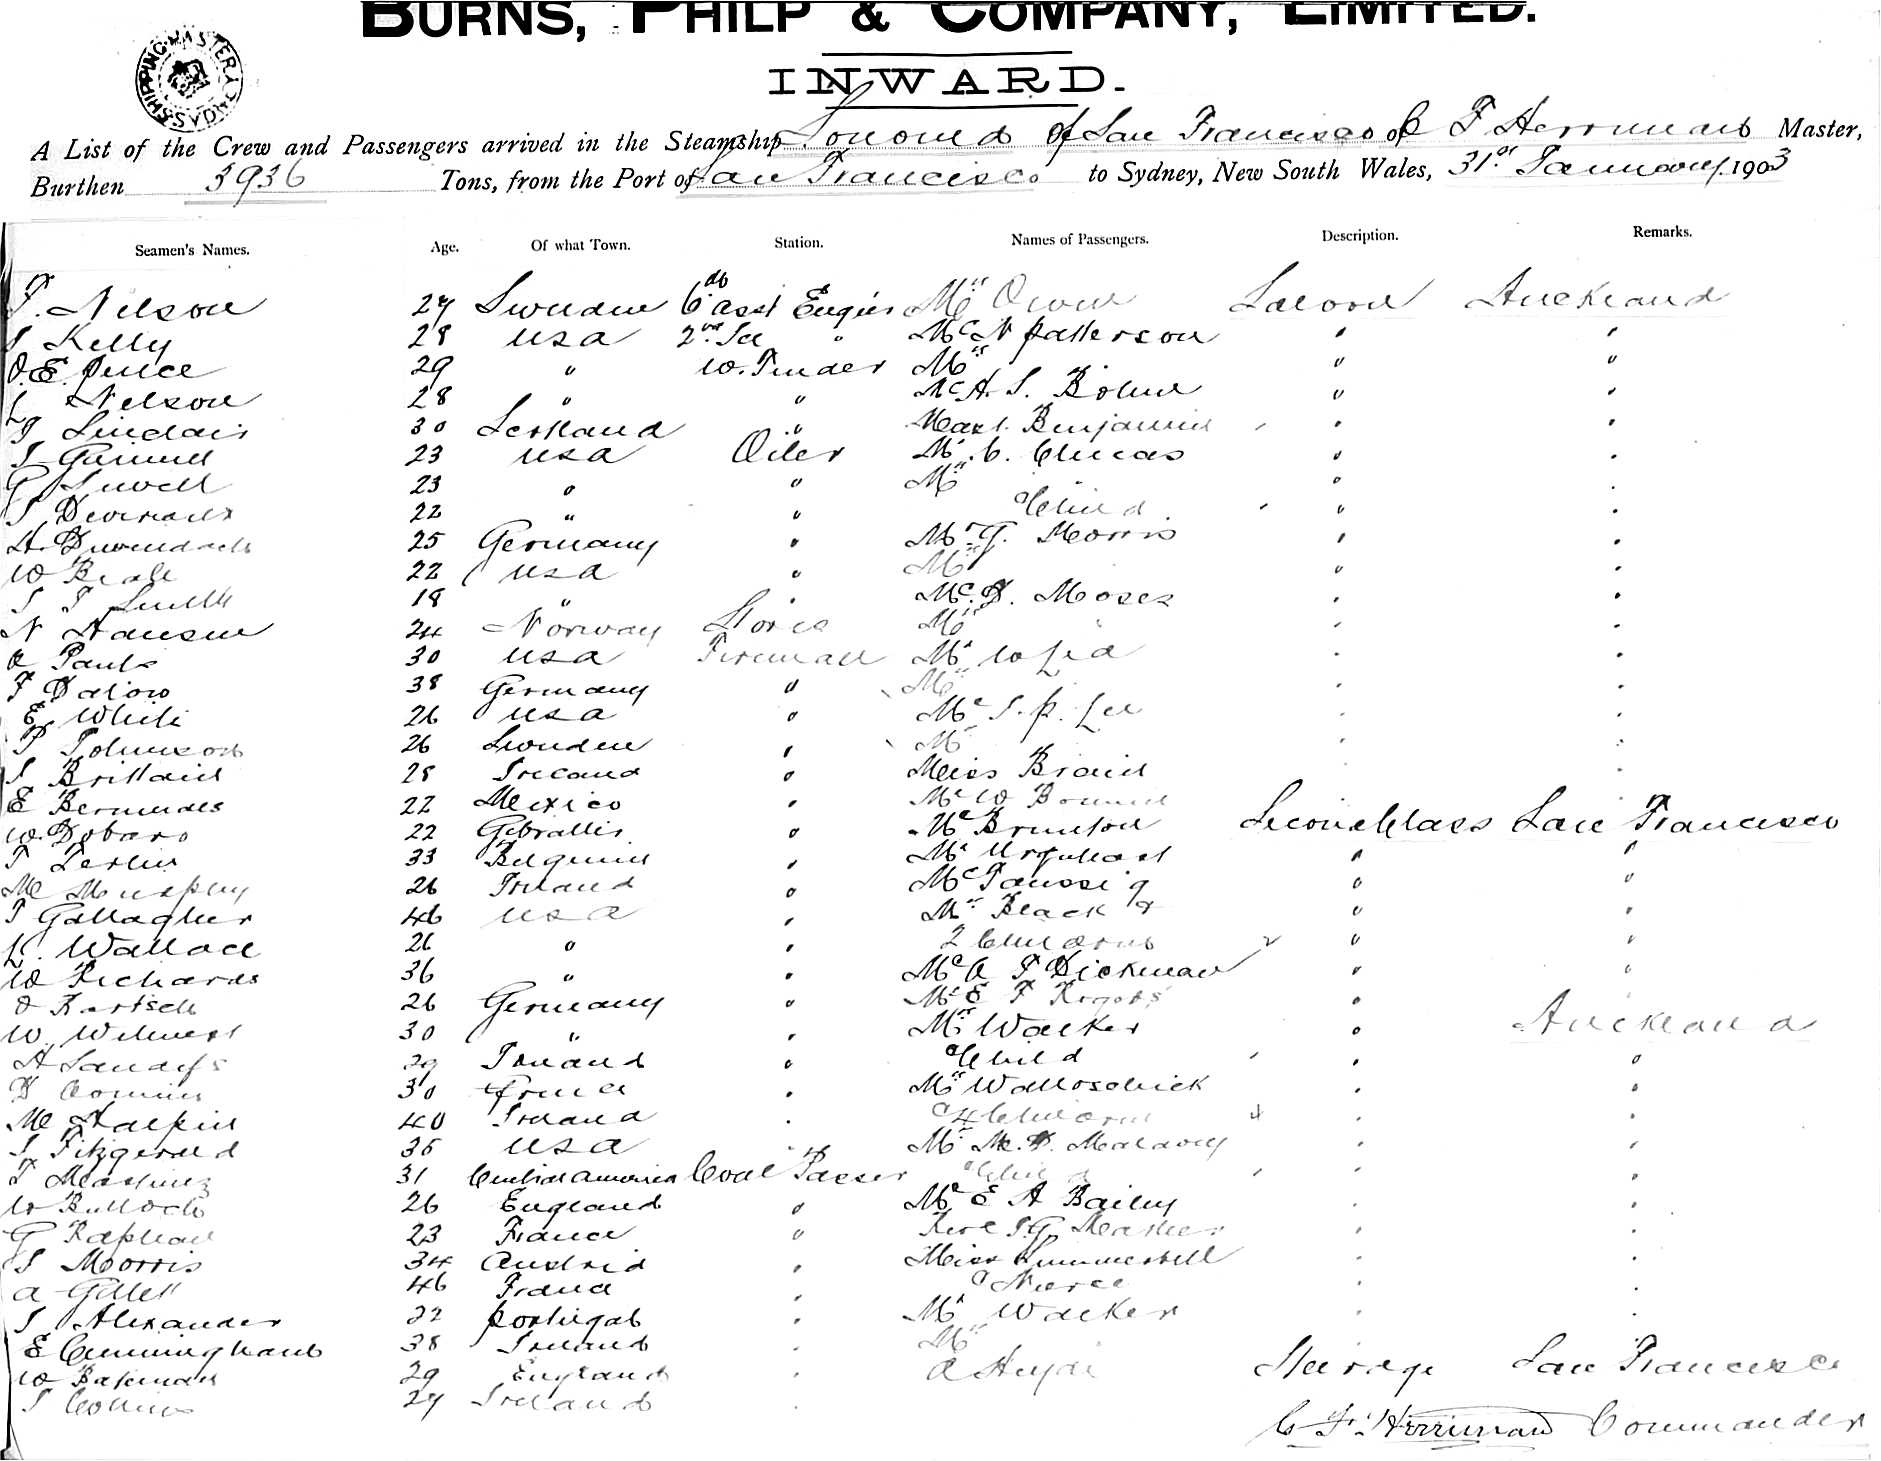 BURNS, PHILP & COMPANY, LIMITED.
SHIPPING MASTER SYDNEY
INWARD.
A List of the Crew and Passengers arrived in the Steamship Sonoma of San Francisco of C F Herriman Master,
Burthen 3936 Tons, from the Port of San Francisco to Sydney, New South Wales, 31st January 1903
Seamen's Names. Age. Of what Town. Station. Names of Passengers. Description. Remarks.
T. Nelson 27 Sweden 6th asst Engineer Mrs Owen Saloon Auckland
J Kelly 28 USA 2nd " Mr N Patterson " "
O.E. Pence 29 " W. Tender Mrs " "
Nelson 28 " " Mr A. S. Bohm " "
Sinclair 30 Scotland " Mast. Benjamin " "
J Gamell 23 USA Oiler Mr C. Clucas " "
G Sewell 23 " " Mrs " "
J 22 " " " Child " "
H. 25 Germany " Mr G. Morris " "
W Beale 22 USA " Mrs " "
J T Smith 18 " " Mr D. Moses " "
N Hansen 24 Norway Stores Mrs " "
A Pauls 30 USA Fireman Mr " "
F Dalow 38 Germany " Mrs " "
E White 26 USA " Mr J. P. Lee " "
P Johnson 26 Sweden " Mrs " "
J Brittain 28 Ireland " Miss Braid " "
E Bermudes 22 Mexico " Mr W
W. Dobaro 22 Gibralter " Mr Brunton Second Class San Francisco
T 33 Belgium " Mr Urquhart " "
M Murphy 26 Ireland " Mr Taussig " "
T Gallagher 46 USA " Mrs Black & " "
L. Wallace 26 " " 2 Children 2 " "
W Richards 36 " " Mr A F Dickman " "
O Bartsch 26 Germany " Mr E F "
W. Wilmers 30 " " Mrs Walker " Auckland
H Sandys 29 Ireland " " Child " "
D 30 " Mrs Walloschick " "
M Halpin 40 Ireland " " 4 Children 4 " "
J Fitzgerald 35 USA Mrs M. D. " "
T Martinez 31 Central America Coal Passer " Child " "
W Bulloch 26 England " Mr E A Bailey " "
G Raphael 23 France " " "
J Morris 34 Austria " Miss Summerbell " "
A Gillet 46 France " " Nurse " "
J Alexander 22 Portugal " Mr Walker " "
E Cunningham 38 Ireland " Mrs
W Bateman 29 England " A Steerage San Francisco
J Collins 27 Ireland "
C. F. Herriman Commander